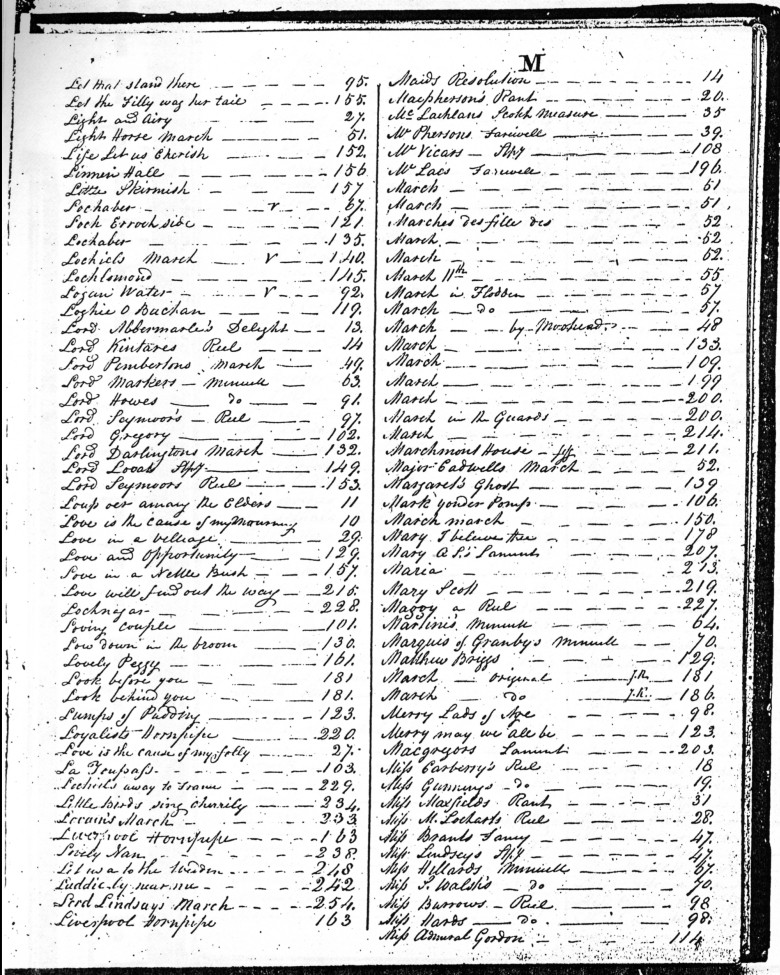 Let that stand there 95.
Let the Filly wag her taie 155.
Light and Airy 27.
Light Horse March 51.
Life Let us Cherish 152.
Linnen Hall 156
Little Skirmish 157
Lochaber v 67.
Loch Erroch side 121.
Lochaber 135.
Lochiels March v 140.
Lochlomond 145.
Logan Water v 92.
Logie O Buchan 119.
Lord Abbermarle's Delight 13.
Lord Kintares Reel 14
Lord Pembertons March 49.
Lord Markers Minuett 63.
Lord Howes do 91.
Lord Seymoor's Reel 97.
Lord Gregory 102.
Lord Darlingtons March 132.
Lord Lovats Sty 149.
Lord Seymoors Reel 153.
Loup oer amang the Elders 11
Love is the cause of my Mourning 10
Love in a velleage 29.
Love and Opportunity 129.
Love in a Nettle Bush 157.
Love will find out the way 215.
Lochnagar 228.
Loving couple 101.
Low down in the broom 130.
Lovely Peggy 161.
Look before you 181
Look behind you 181.
Lumps of Pudding 123.
Loyalists Hornpipe 220.
Love is the cause of my folly 27.
La Toupass 103.
Lochiels away to France 229.
Little Birds sing cheerily 234.
March 233
Liverpool Hornpipe 163
Lively Nan 238.
Let us a to the 248
Luddie ly near me 242
Lord Lindsays March 254.
Liverpool Hornpipe 163
M
Maids Resolution 14
Macpherson's Rant 20.
Mc Lachlans Scotch Measure 35
Mc Phersons Farewell 39.
Mr Vicars Sty 108
Farewell 196.
March 51
March 51.
Marches des fille des 52
March 52
March 52.
March 11th 55
March in Flodden 57
March do 57.
March by Moorhead 48
March 133.
March 109.
March 199
March 200.
March in the Guards 200.
March 214.
Marchmont House 211.
Major Cadwells March 52.
Margaret's Ghost 139
Mark yonder Pomp 106.
March march 150.
Mary I believe thee 178
Mary Lament 207.
Maria 213.
Mary Scott 219.
Maggy a Reel 227.
Martinis Minuett 64.
Marquis of Granby's Minuett 70.
Matthew Briggs 129.
March original J.R. 181
March do J.R. 186.
Merry Lads of Ayre 98.
Merry may we all be 123.
Macgregors Lament 203.
Miss Carberry's Reel 18
Miss Gunnings do 19.
Miss Maxfields Rant 31
Miss M. Locharts Reel 28.
Miss Grants Fancy 47.
Miss Lindseys Sty 47.
Miss Hillards Minuett 67.
Miss S. Walshs do 70.
Miss Burrows Reel 98
Miss Hards do 98.
Miss Admiral Gordon 114